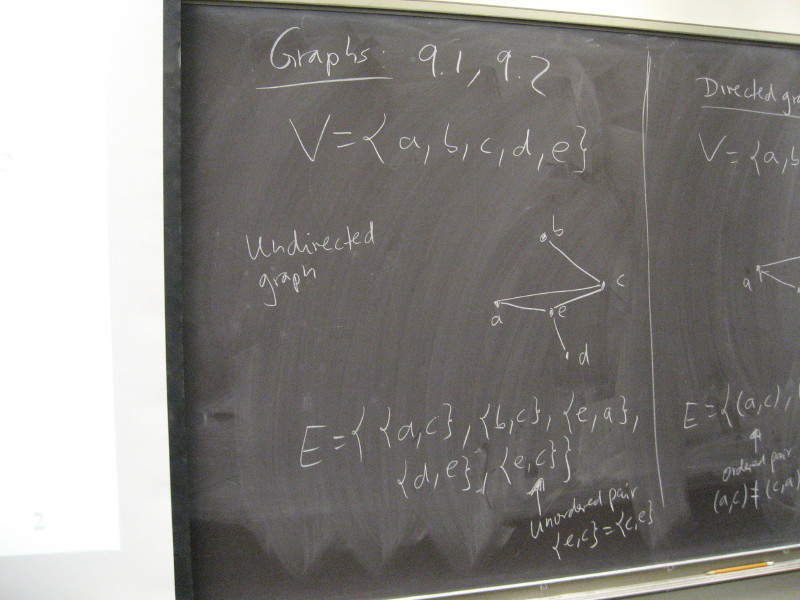 Graphs: 9.1, 9.2
V={a,b,c,d,e}
Undirected
graph
b
c
a
e
d
E={ {a,c}, {b,c}, {e,a},
{d,e}, {e,c}}
Unordered pair
{e,c}={c,e}
Directed gra
V={a,b
a
E={(a,c),
ordered pair
(a,c)≠(c,a)
2